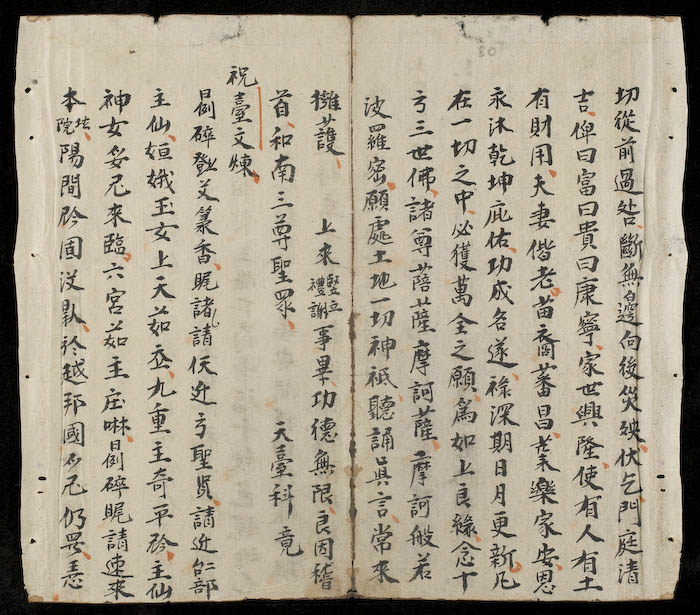 切從前過咎斷無邊向後災殃伏乞門庭清
吉俾曰富曰貴曰康寧家世興隆使有人有土
有財用夫妻偕老苗裔蕃昌業樂家安恩
承沐乾坤庇佑功成名遂祿深期日月更新凡
在一切之中必獲萬全之願爲如上良緣念十
方三世佛諸尊菩薩摩訶薩摩訶般若
波羅密願處土地一切神祇聽誦眞言常來
擁護 上來豎立禮謝事畢功德無限良因稽
首和南三尊聖眾 天臺科竟
祝臺文煉
香 諸 請 近方聖賢請近 部
主仙姮娥玉女上天茹 九重主奇平 主仙
神女 來臨六宮茹主 請速來
本坛院陽間 固沒 於越邦國 仍